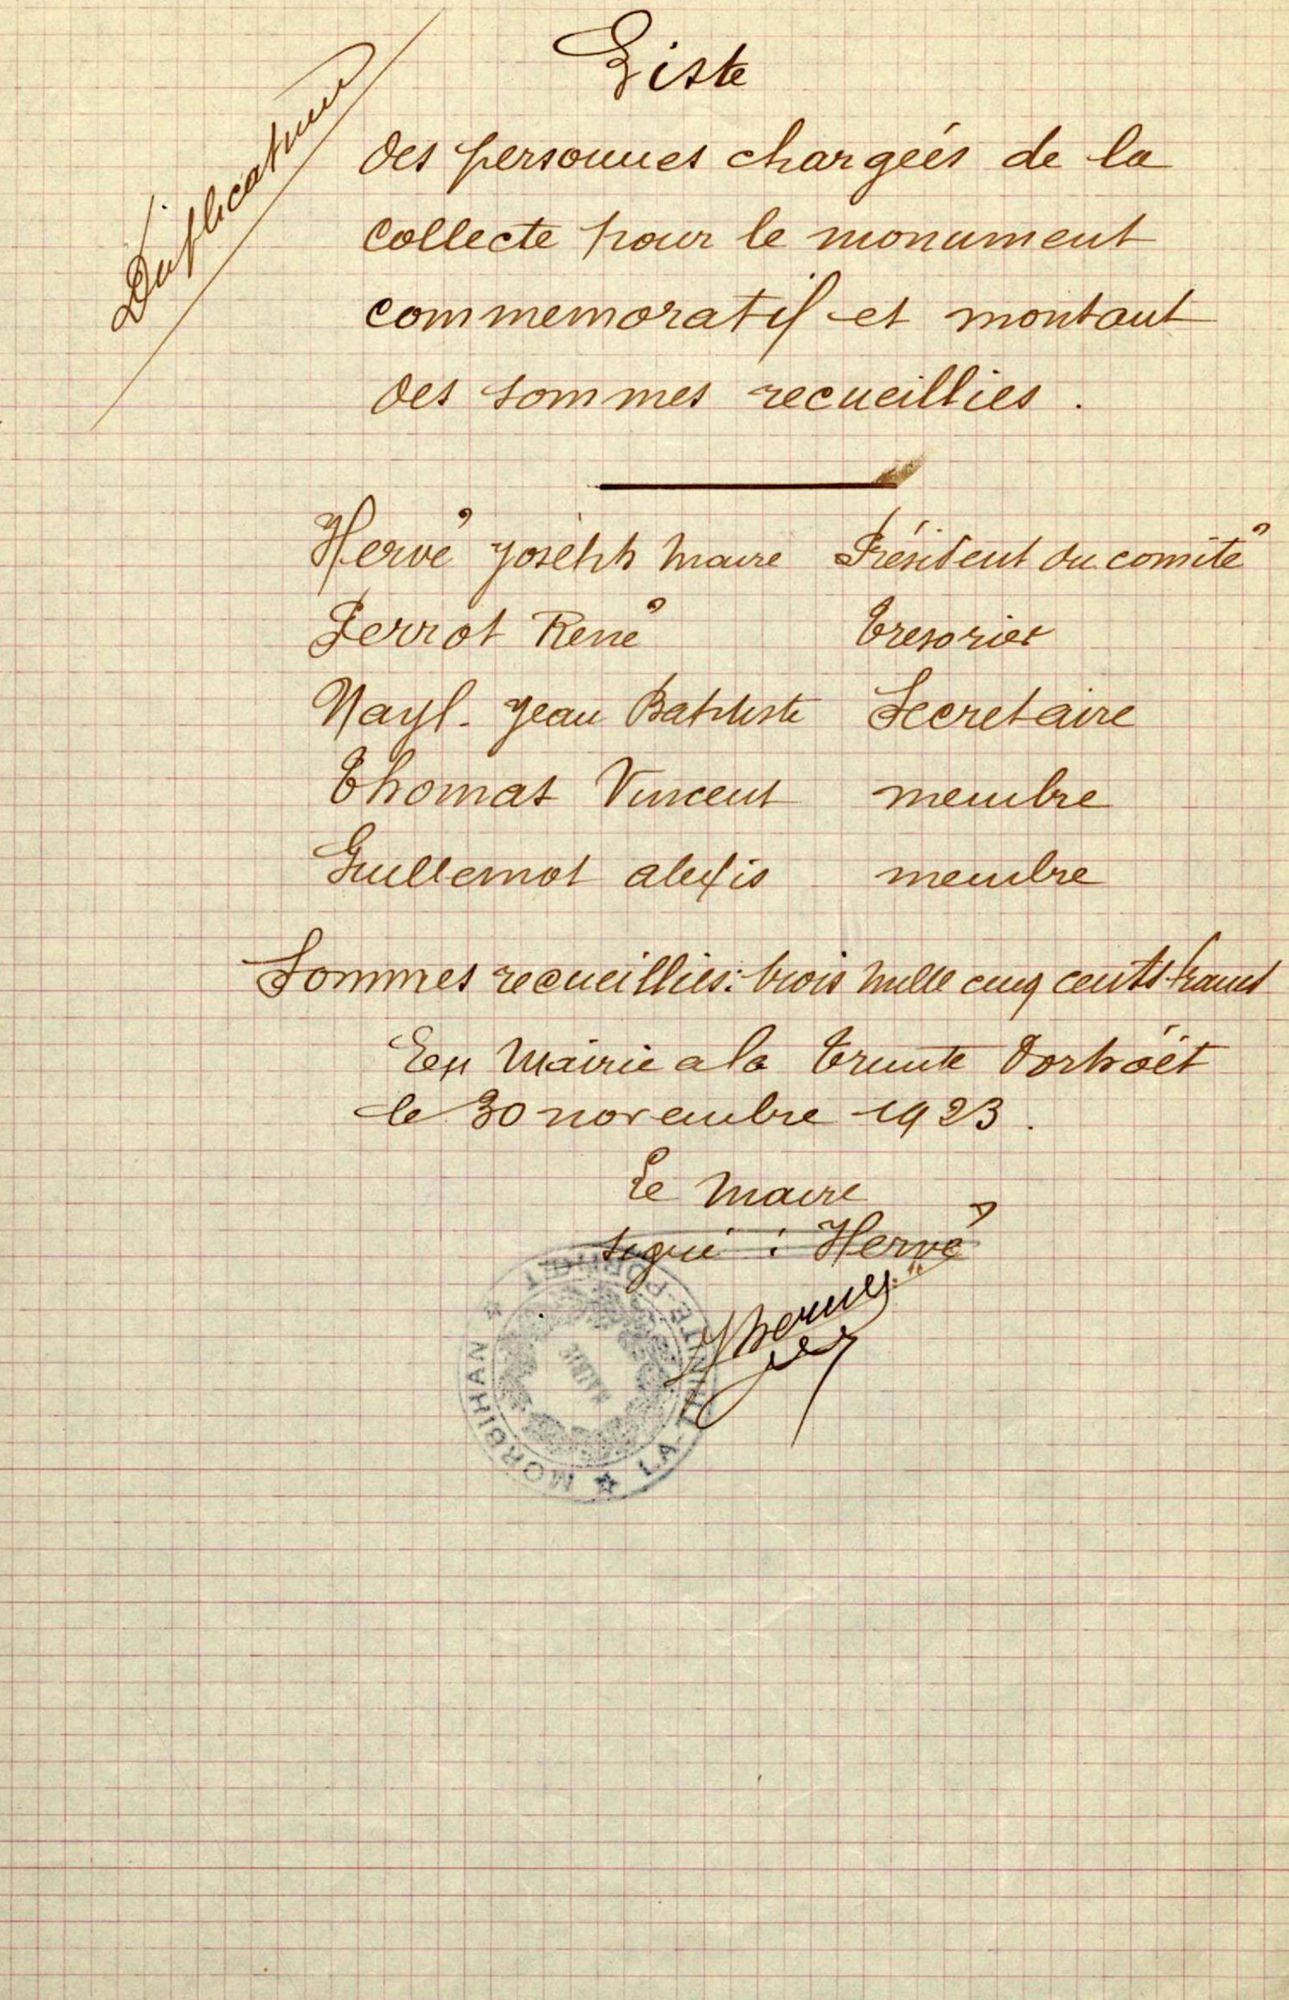 Duplicatum
Liste
des personnes chargées de la
collecte pour le monument
commemoratif et montant
des sommes recueillies.
Hervé Joseph Maire Président du comité
Perrot René Tresorier
Nayl. Jean Baptiste Secretaire
Thomas Vincent membre
Guillemot alexis membre
Sommes recueillies: trois mille cinq cents francs
En Mairie a la Trinité Porhoët
le 30 novembre 1923.
Le Maire
signé : Hervé
LA-TRINITE-PORHOET
MORBIHAN
MAIRIE